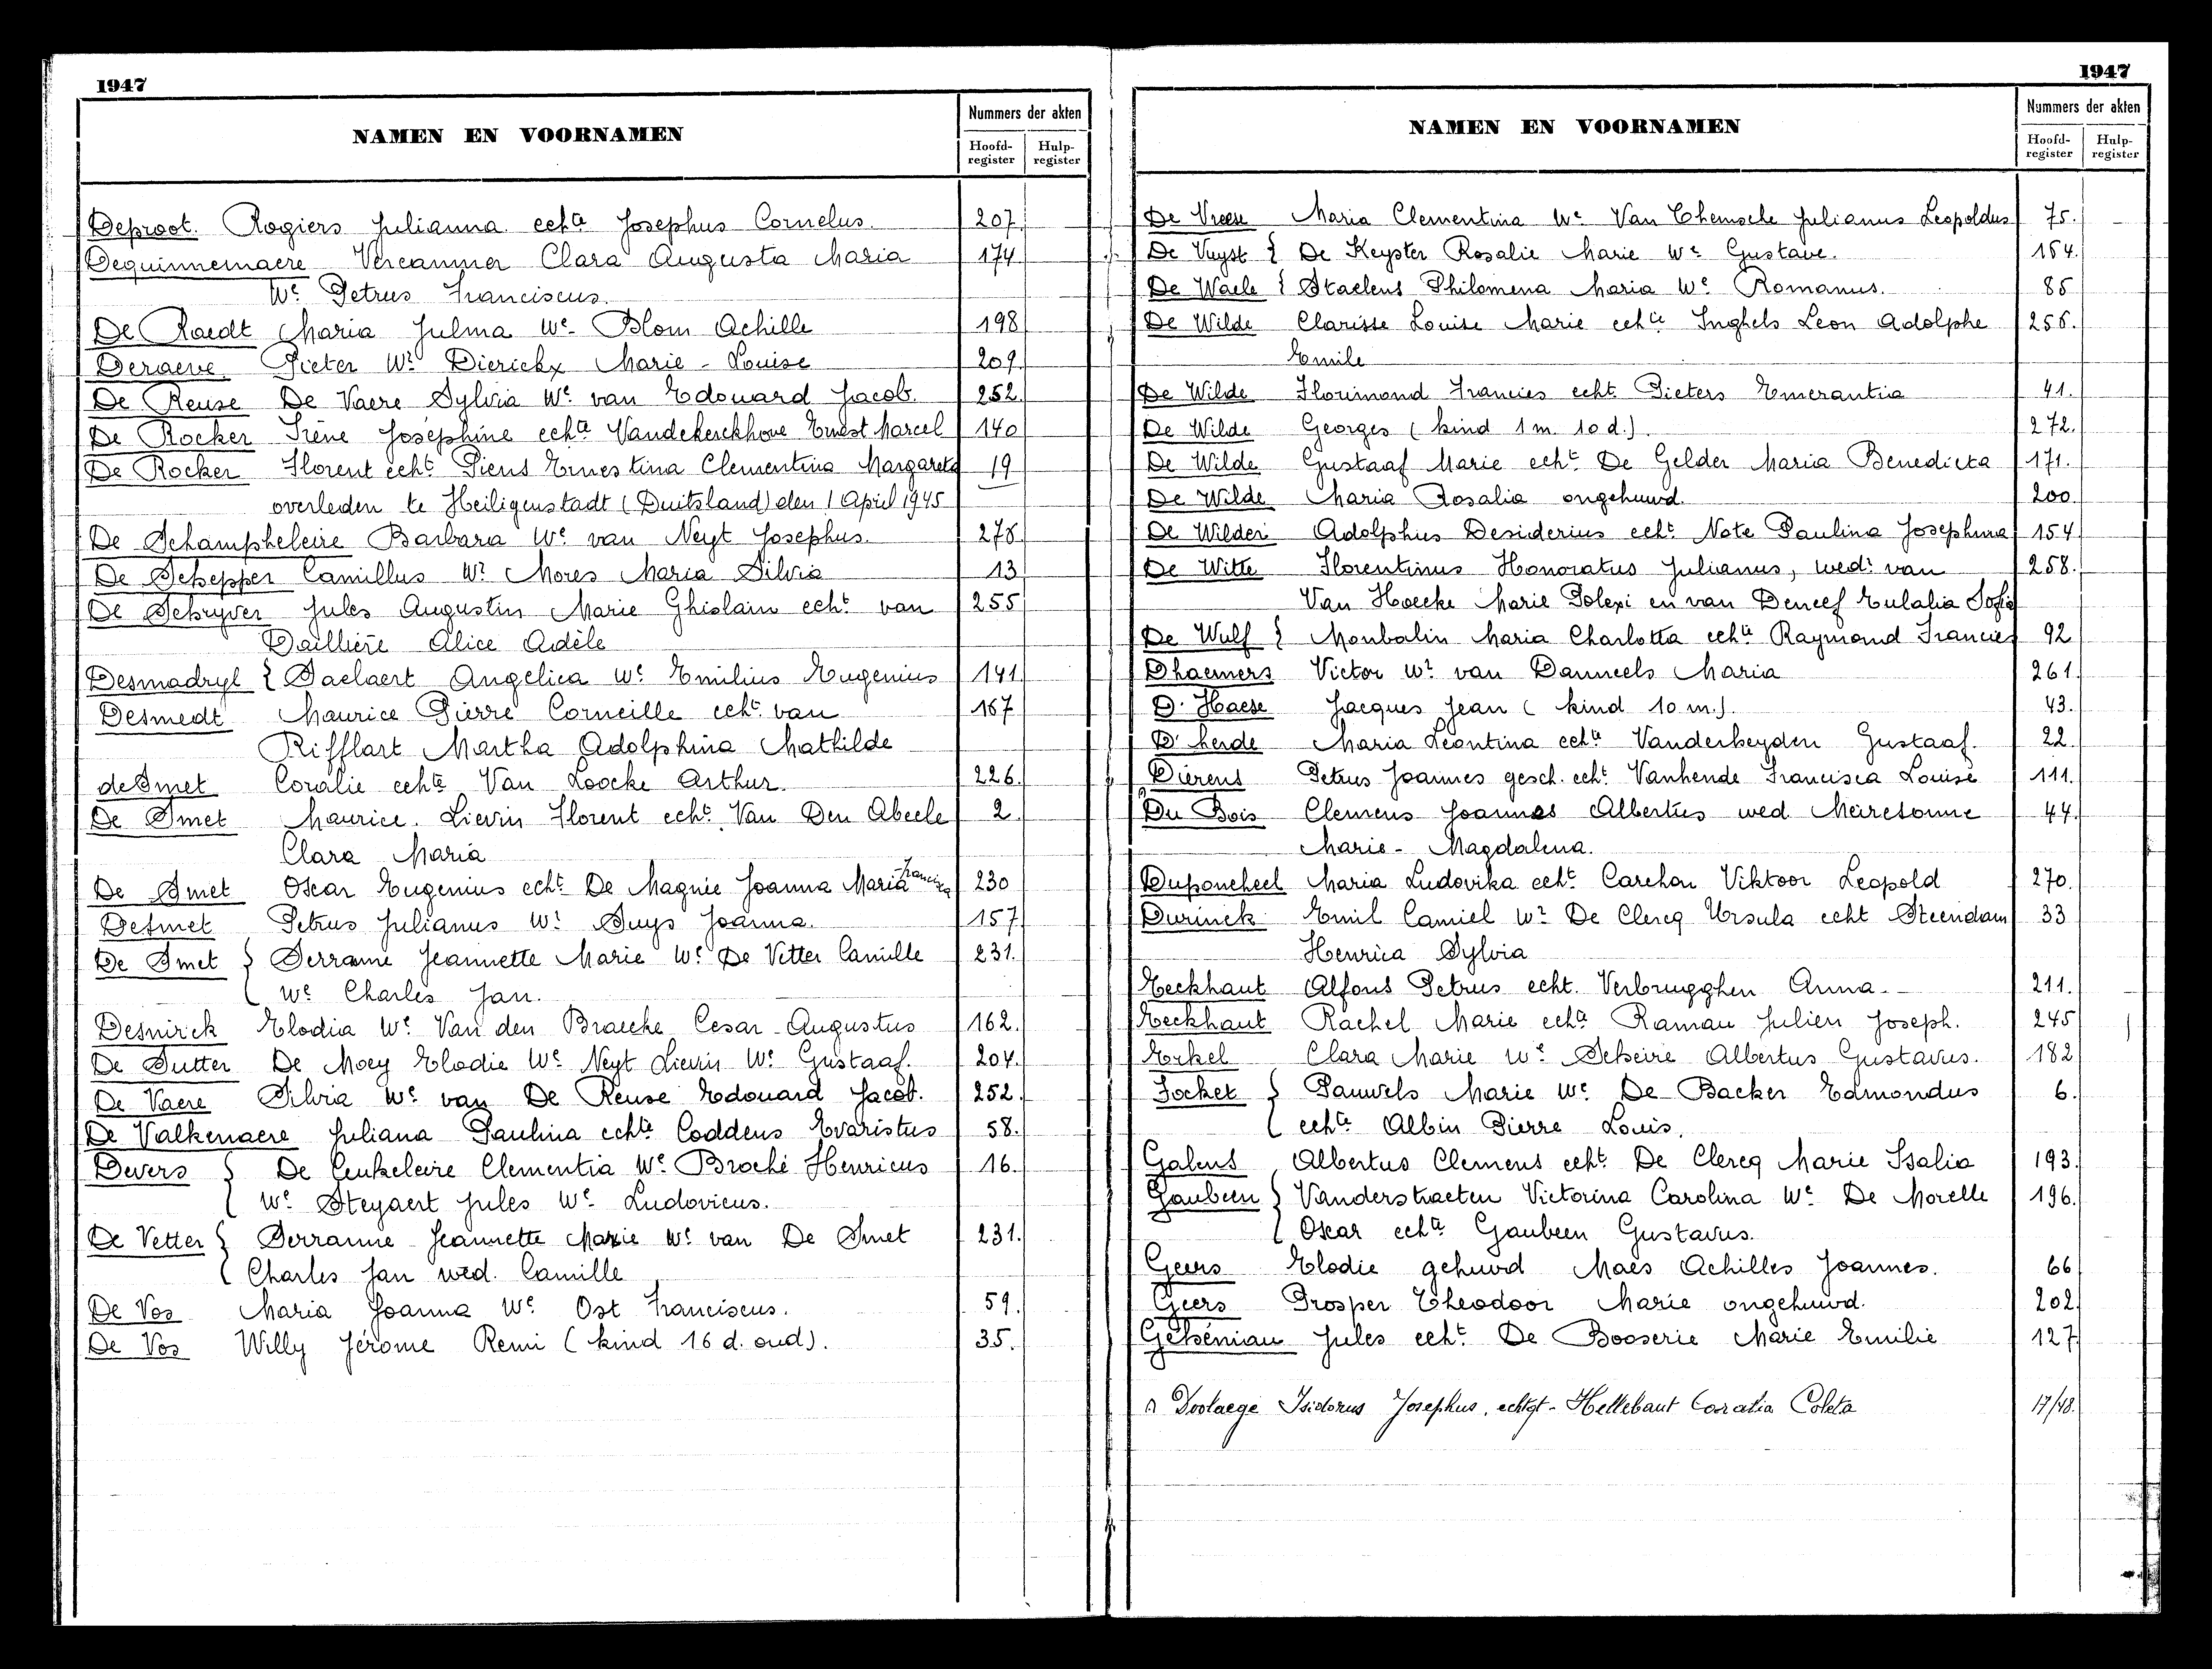 1947
NAMEN EN VOORNAMEN
Nummers der akten
Hoofd-register
Hulp-register
Deproot. Rogiers Julianna echte Josephus Cornelus. 207.
Dequinnemaere Vercammer Clara Augusta Maria 174
We Petrus Franciscus.
De Raedt Maria Julma We Blom Achille 198
Deraeve Pieter Wr Dierickx Marie-Louise 209.
De Reuse De Vaere Sylvia We van Edouard Jacob. 252.
De Rocker Irène Joséphine echte Vandekerckhove Ernest Marcel 140
De Rocker Florent echt Piens Ernestina Clementina Margareta 19
overleden te Heiligenstadt (Duitsland) den 1 April 1945
De Schampheleire Barbara We van Neyt Josephus. 278.
De Schepper Camillus Wr Mores Maria Silvia 13
De Schryver Jules Augustin Marie Ghislain echt van 255
Dailliére Alice Adèle
Desmadryl { Baelaert Angelica We Emilius Eugenius 141
Desmedt Maurice Pierre Corneille echt van 187
Rifflart Martha Adolphina Mathilde
deSmet Coralie echte Van Loocke Arthur. 226.
De Smet Maurice Lievin Florent echt. Van Den Abeele 2.
Clara Maria
De Smet Oscar Eugenius echt De Magnie Joanna Maria Francisca 230
Desmet Petrus Julianus Wr Buys Joanna. 157
De Smet { Serranne Jeannette Marie We De Vetter Camille 231.
We Charles Jan.
Desnirck Elodia We Van den Braecke Cesar-Augustus 162.
De Sutter De Moey Elodie We Neyt Lievin We Gustaaf. 204.
De Vaere Silvia We van De Reuse Edouard Jacob. 252.
De Valkenaere Juliana Paulina echte Coddens Evaristus 58.
Devers { De Ceukeleire Clementia We Broché Henricus 16.
We Steyaert Jules We Ludovicus.
De Vetter { Serranne Jeannette Marie We van De Smet 231.
Charles Jan wed. Camille
De Vos Maria Joanna We Ost Franciscus. 59.
De Vos Willy Jérome Remi (kind 16 d. oud). 35.
1947
NAMEN EN VOORNAMEN
Nummers der akten
Hoofd-register
Hulp-register
De Vreese Maria Clementina We Van Themsche Julianus Leopoldus 75.
De Vuyst { De Keyster Rosalie Marie We Gustave. 184.
De Waele { Staelens Philomena Maria We Romanus. 85
De Wilde Clarisse Louise Marie echte Inghels Leon Adolphe 256.
Emile
De Wilde Florimond Francies echt. Pieters Emerantia 41.
De Wilde Georges (kind 1 m. 10 d.). 272.
De Wilde Gustaaf Marie echt De Gelder Maria Benedicta 171.
De Wilde Maria Rosalia ongehuwd. 200.
De Wilder Adolphus Desiderius echt. Note Paulina Josephina 154
De Witte Florentinus Honoratus Julianus, wedr van 258.
Van Hoecke Marie Polexi en van Deneef Eulalia Sofie
De Wulf { Monbalin Maria Charlotta echte Raymond Francies 92
Dhaemers Victor Wr van Danneels Maria 261.
D'Haese Jacques Jean (kind 10 m.). 43.
D'herde Maria Leontina echte Vanderheyden Gustaaf. 22.
Dierens Petrus Joannes gesch. echt. Vanhende Francisca Louise 111.
Du Bois Clemens Joannes Albertus wed Meiresonne 44.
Marie-Magdalena.
Duponcheel Maria Ludovika echt. Carchon Viktoor Leopold 270.
Durinck Emil Camiel Wr De Clercq Ursula echt Steendam 33
Henrica Sylvia
Eeckhaut Alfons Petrus echt. Verbrugghen Anna. 211.
Eeckhaut Rachel Marie echte Raman Julien Joseph. 245
Erkel Clara Marie We Scheire Albertus Gustavus. 182
Focket { Pauwels Marie We De Backer Edmondus 6.
echte Albin Pierre Louis.
Galens Albertus Clemens echt. De Clercq Marie Isalia 193.
Gaubeen { Vanderstraeten Victorina Carolina We De Morelle 196.
Oscar echte Gaubeen Gustavus.
Geers Elodie gehuwd Maes Achilles Joannes. 66
Geers Prosper Theodoor Marie ongehuwd. 202
Gekénian Jules echt. De Booserie Marie Emilie 127
Doolaege Isidorus Josephus, echtgt- Hellebaut Coralia Coleta 17/48.